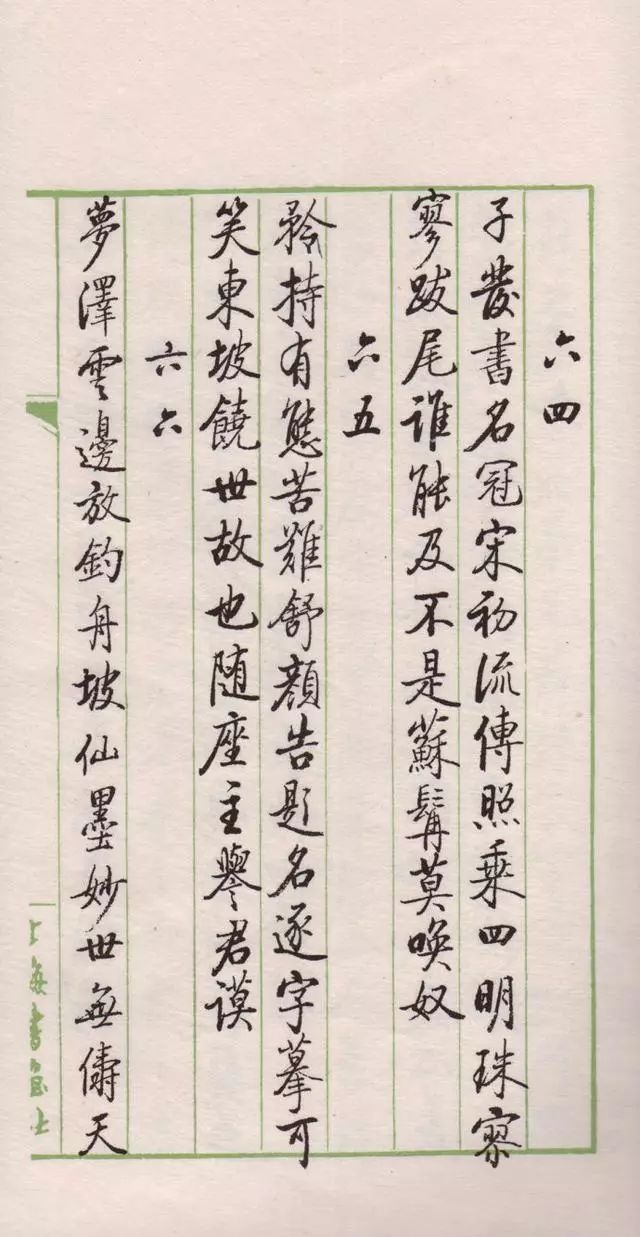 六四
子發書名冠宋初流傳照乘四明珠寥
寥跋尾誰能及不是蘇髯莫喚奴
六五
矜持有態苦難舒顏告題名逐字摹可
笑東坡饒世故也随座主譽君謨
六六
夢澤雲邊放釣舟坡仙墨妙世無儔天
上海書畫社